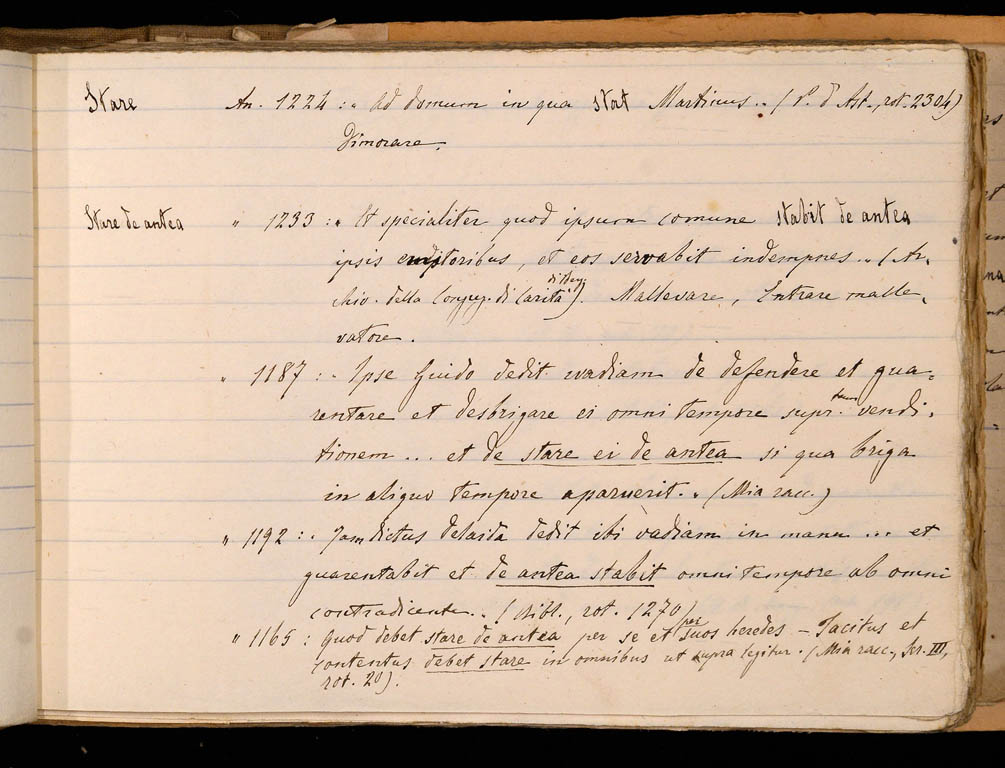 Stare An. 1224 : „ Ad domum in qua stat Martinus „ ( P. d' Ast., rot. 2304)
Dimorare.
Stare de antea „ 1233 : „ Et specialiter quod ipsum comune stabit de antea
ipsis creditoribus, et eos servabit indempnes „ ( Ar-
chio. della Congreg. di Carità di Asti). Mallevare, Entrare malle-
vatore.
„ 1187 : „ Ipse Guido dedit wadiam de defendere et gua-
rentare et desbrigare ei omni tempore supr.tam vendi-
tionem ... et de stare ei de antea si qua briga
in aliquo tempore aparuerit. „ (Mia racc.)
„ 1192 : „ Jamdictus dedit ibi vadiam in manu ... et
guarentabit et de antea stabit omni tempore ab omni
contradicente „ ( Bibl., rot. 1270)
„ 1165 : quod debet stare de antea per se et per suos heredes – Tacitus et
contentus debet stare in omnibus ut supra legitur. (Mia racc., Ser. III,
rot. 20).